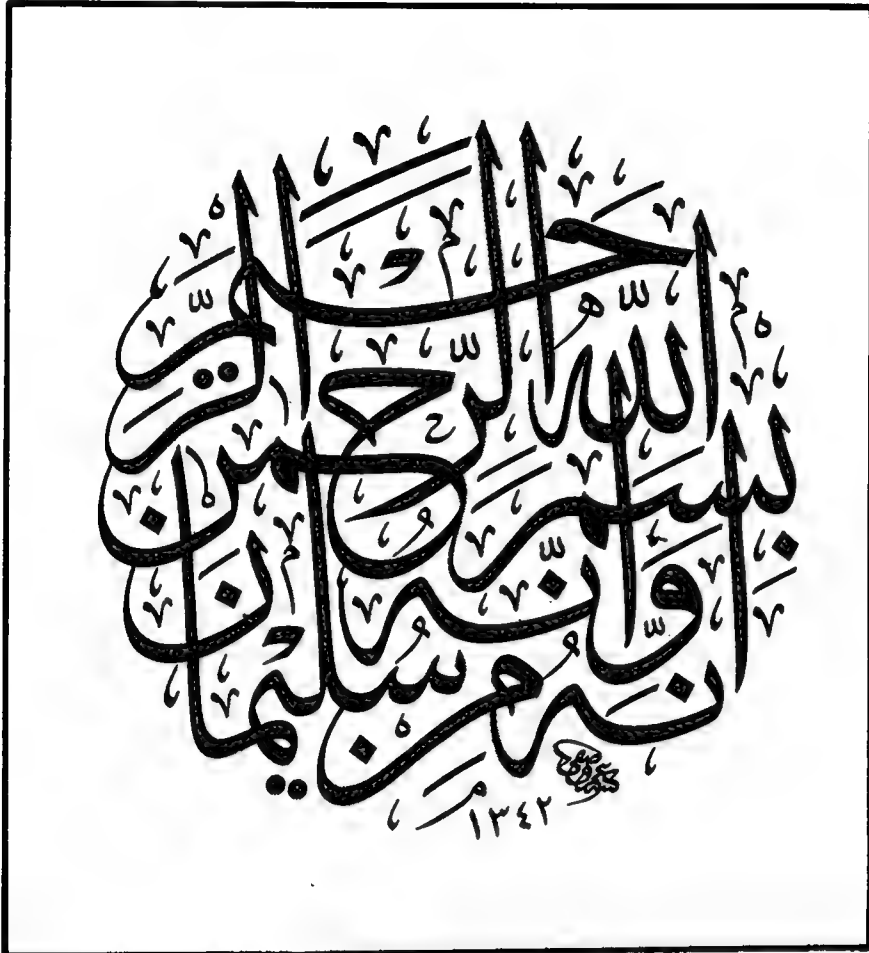 إنه من سليمان
وإنه بسم
الله الرحمن
الرحيم
١٣٤٢